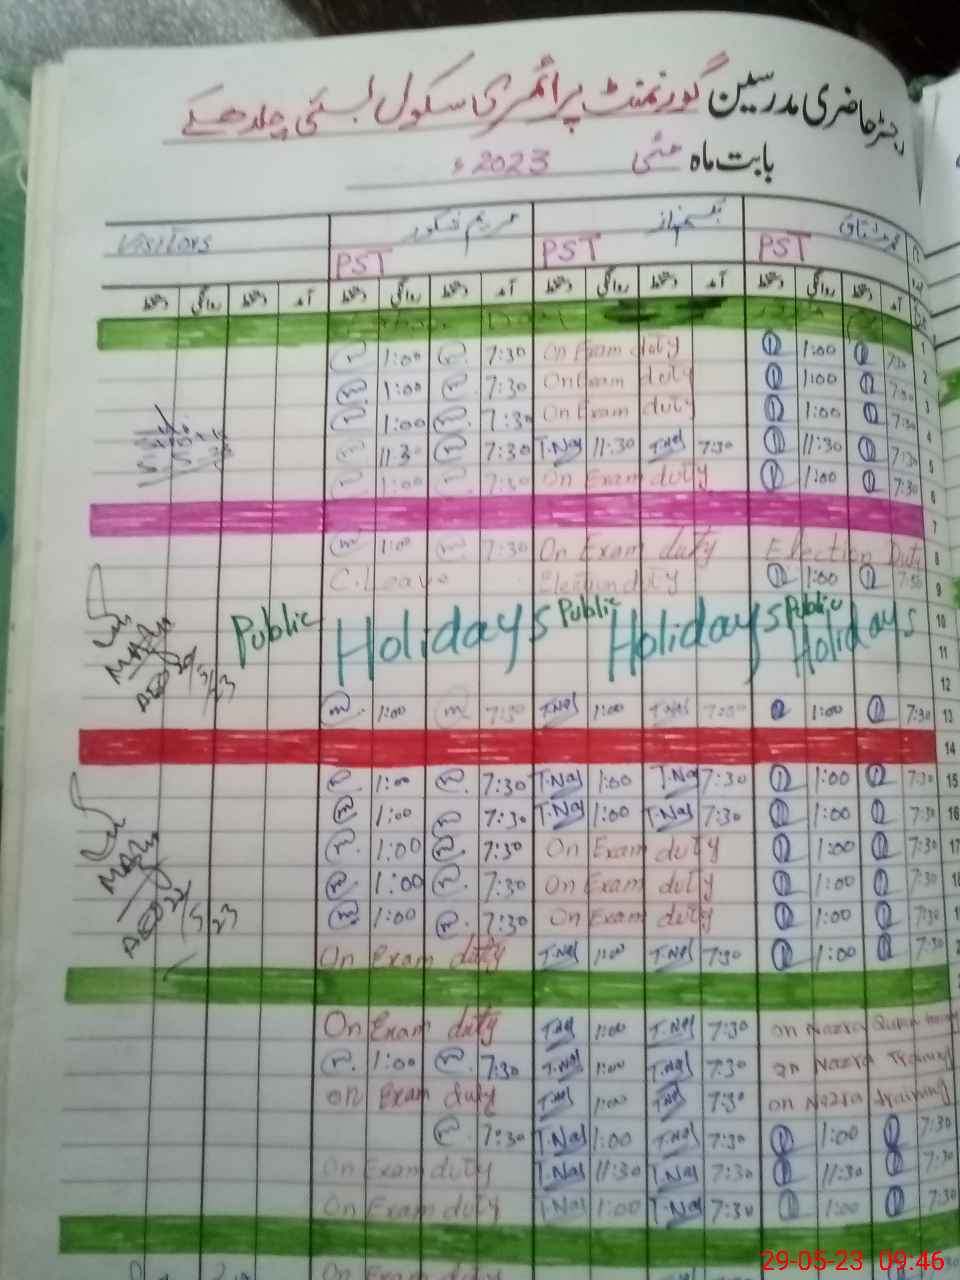 رجسٹر حاضری مدرسین گورنمنٹ پرائمری سکول بستی
بابت ماہ مئی 2023ء
Visitors مریم
PST PST PST
آمد دستخط روانگی دستخط آمد دستخط روانگی دستخط آمد دستخط روانگی دستخط
1:00 7:30 On Exam duty 1:00 7:30 1
1:00 7:30 On Exam duty 1:00 7:30 2
1:00 7:30 On Exam duty 1:00 7:30 3
11:30 7:30 T.Naj 11:30 T.Naj 7:30 11:30 7:30 4
1:00 7:30 On Exam duty 1:00 7:30 5
6
7
1:00 7:30 On Exam duty Election Duty 8
C.Leave Election duty 1:00 7:30 9
Public Holidays Public Holidays Public Holidays 10
11
12
1:00 7:30 T.Naj 1:00 T.Naj 7:30 1:00 7:30 13
14
1:00 7:30 T.Naj 1:00 T.Naj 7:30 1:00 7:30 15
1:00 7:30 T.Naj 1:00 T.Naj 7:30 1:00 7:30 16
1:00 7:30 On Exam duty 1:00 7:30 17
1:00 7:30 On Exam duty 1:00 7:30
1:00 7:30 On Exam duty 1:00 7:30
AEO 22/5/23
On Exam duty T.Naj 1:00 T.Naj 7:30 1:00 7:30
On Exam duty T.Naj 1:00 T.Naj 7:30 on Nazra Quran
1:00 7:30 T.Naj 1:00 T.Naj 7:30 on Nazra Training
on Exam duty T.Naj 1:00 T.Naj 7:30 on Nazra training
7:30 T.Naj 1:00 T.Naj 7:30 1:00 7:30
On Exam duty T.Naj 11:30 T.Naj 7:30 11:30 7:30
On Exam duty T.Naj 1:00 T.Naj 7:30 1:00 7:30
On Exam duty
29-05-23 09:46